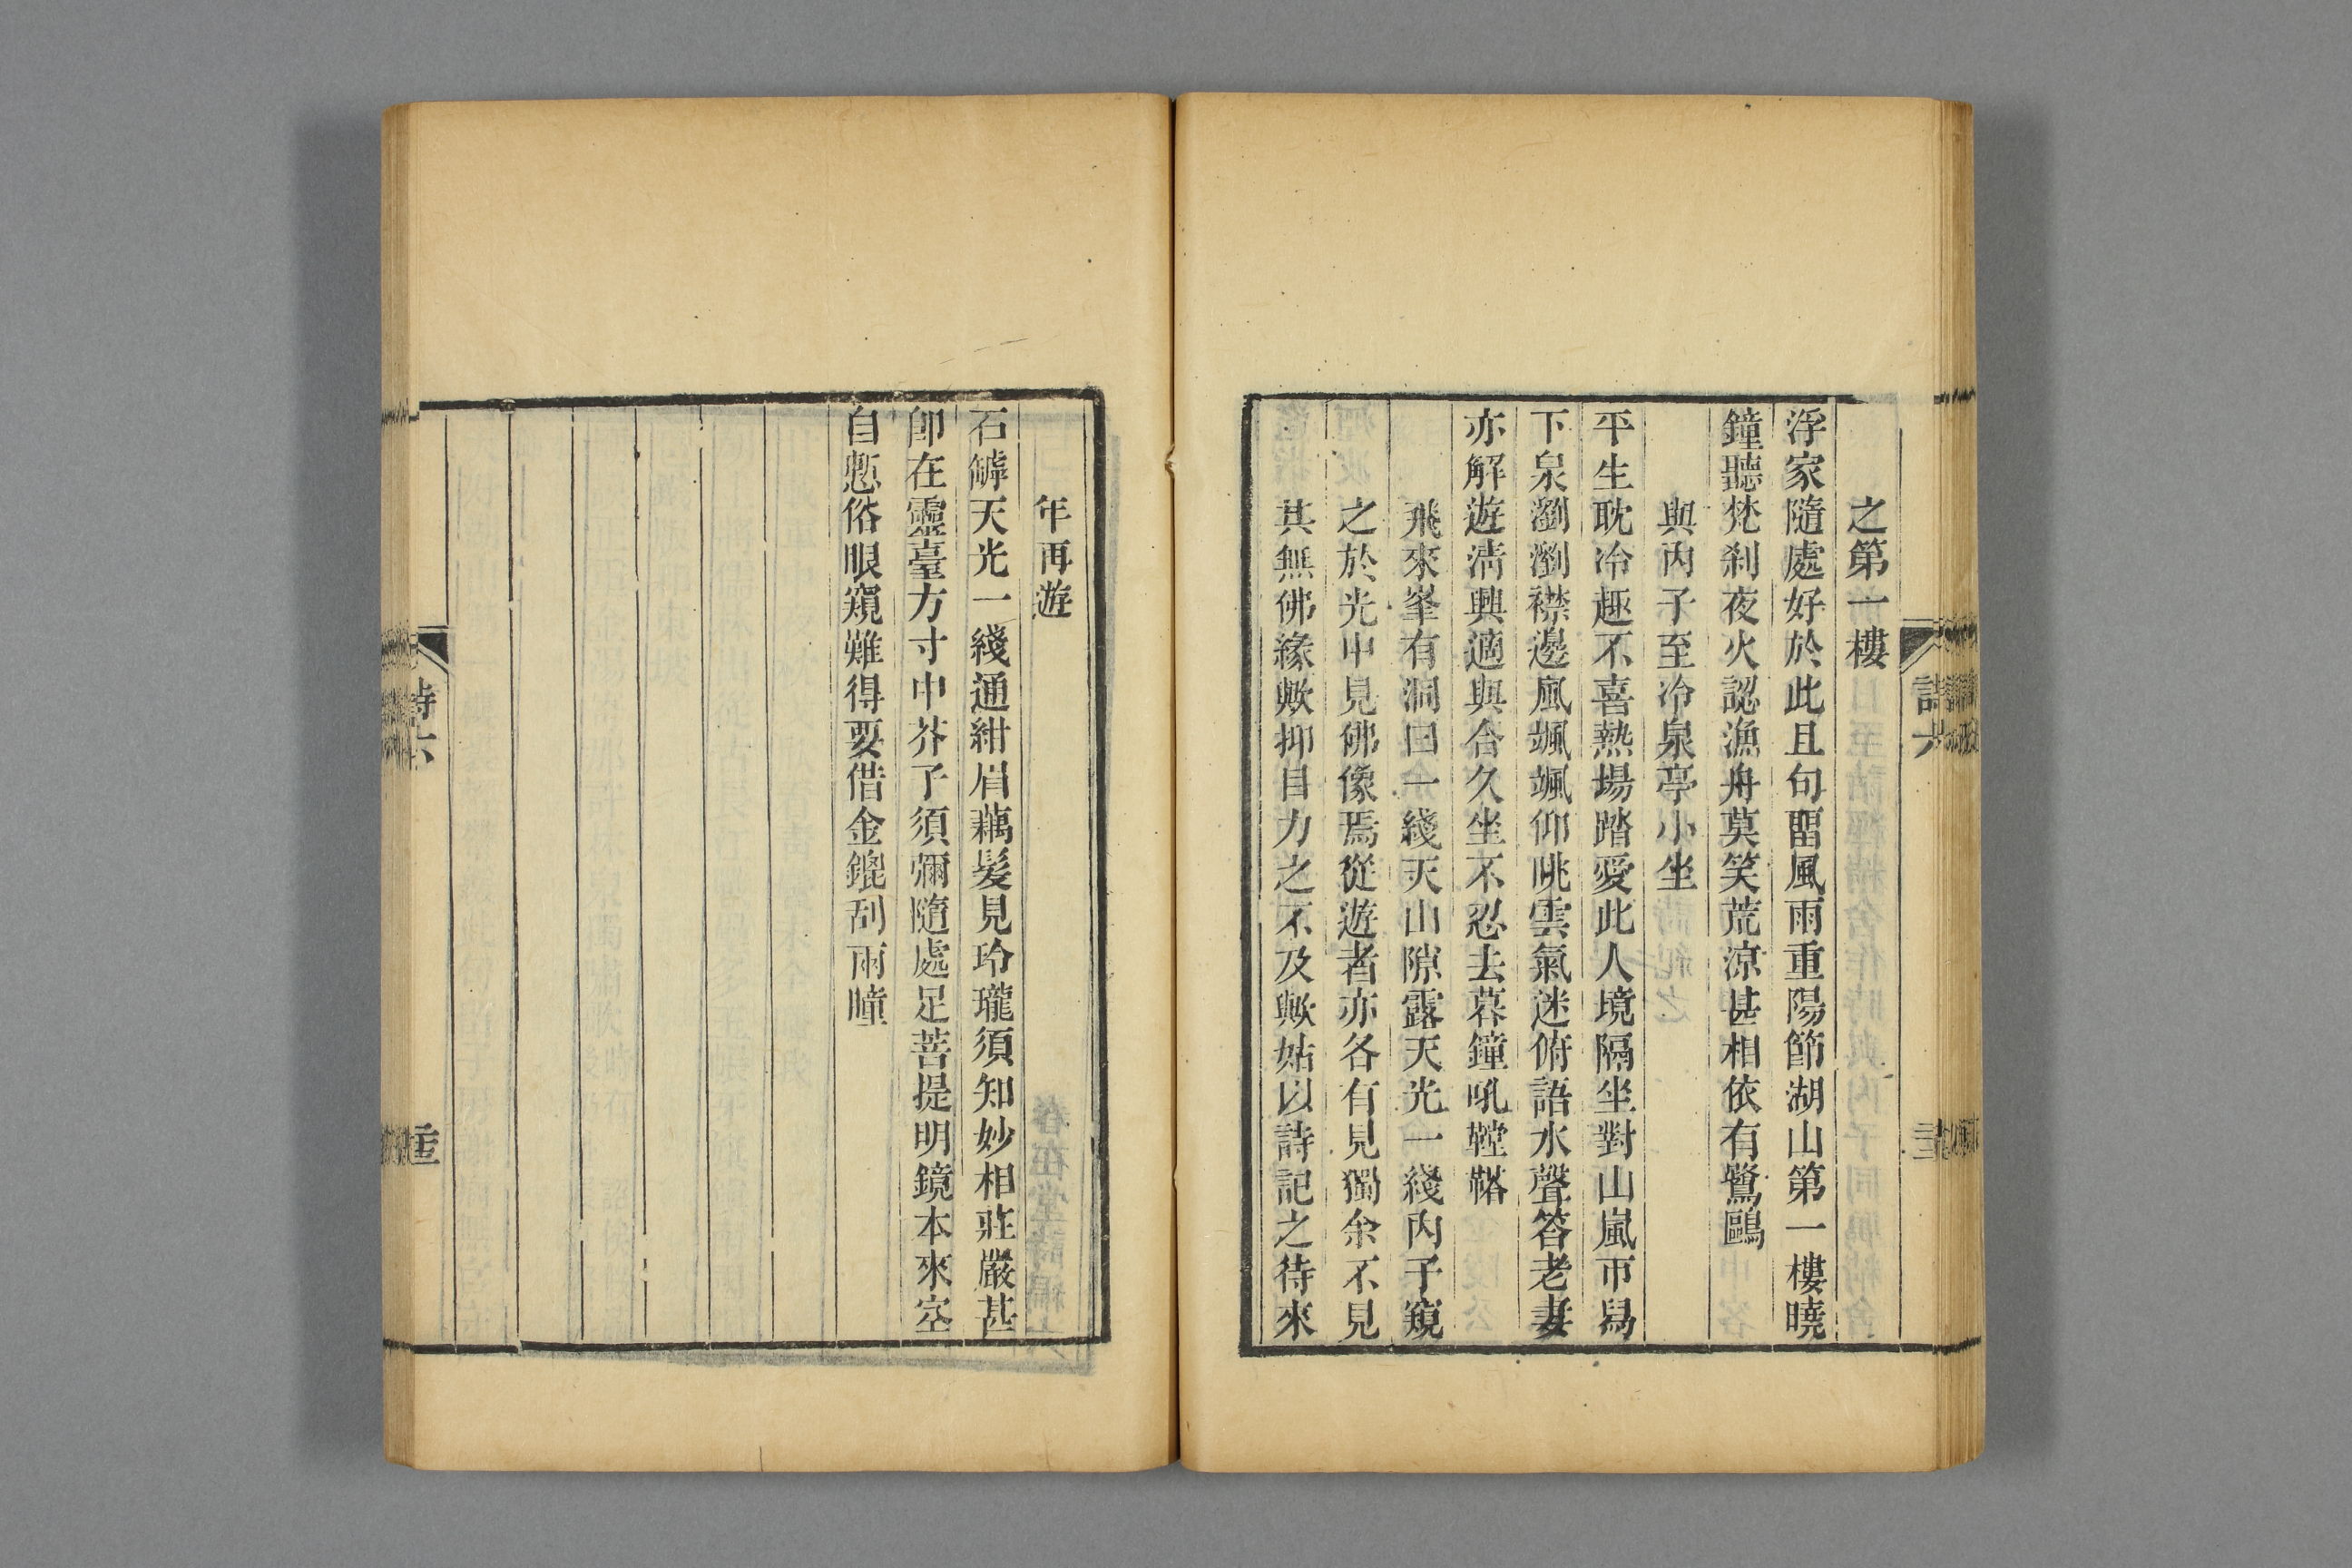 之第一樓
浮家隨處好於此且句畱風雨重陽節湖山第一樓曉
鐘聽梵刹夜火認漁舟莫笑荒涼甚相依有鷺鷗
與內子至冷泉亭小坐
平生耽冷趣不喜熱場踏愛此人境隔坐對山嵐帀舄
下泉瀏瀏襟邊風颯颯仰眺雲氣迷俯語水聲答老妻
亦解遊淸興適與合久坐不忍去暮鐘吼鞺鞳
飛來峯有洞曰一綫天山隙露天光一綫內子窺
之於光中見佛像焉從遊者亦各有見獨余不見
其無佛緣歟抑目力之不及歟姑以詩記之待來
詩六
年再遊
石罅天光一綫通紺眉藕髮見玲瓏須知妙相莊嚴甚
卽在靈臺方寸中芥子須彌隨處足菩提明鏡本來空
自慙俗眼窺難得要借金鎞刮兩瞳
詩六